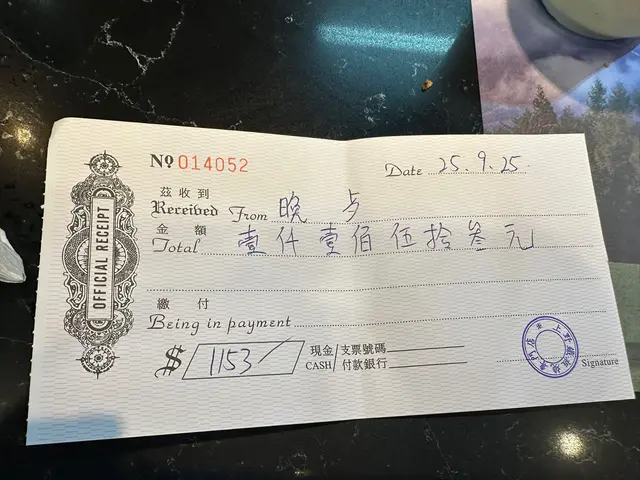 OFFICIAL RECEIPT
№ 014052
Date 25.9.25
茲收到
Received From 晚步
金額
Total 壹仟壹佰伍拾叁元
繳付
Being in payment
$ 1153/
現金 支票號碼
CASH 付款銀行
Signature